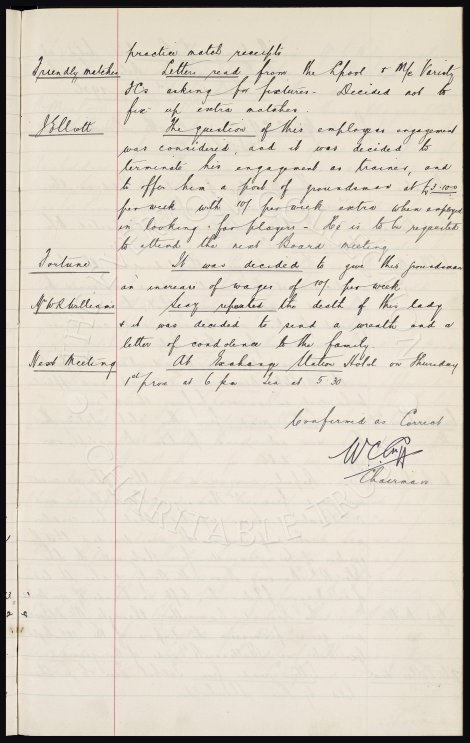 practice match receipts
Friendly matches Letters read from the Lpool & M/c Varsity
FCs asking for fixtures. Decided not to
fix up extra matches.
J Elliott The question of this employees engagement
was considered, and it was decided to
terminate his engagement as trainer, and
to offer him a post of groundsman at £3-10-0
per week with 10/ per week extra when employed
in looking for players - He is to be requested
to attend the next Board meeting
Fortune It was decided to give this groundsman
an increase of wages of 10/ per week
Mrs W.R. Williams Secy reported the death of this lady
& it was decided to send a wreath and a
letter of condolence to the family.
Next Meeting At Exchange Station Hotel on Thursday
1st prox at 6 pm Tea at 5-30
Confirmed as Correct
W.C. Cuff
Chairman
CHARITABLE TRUST